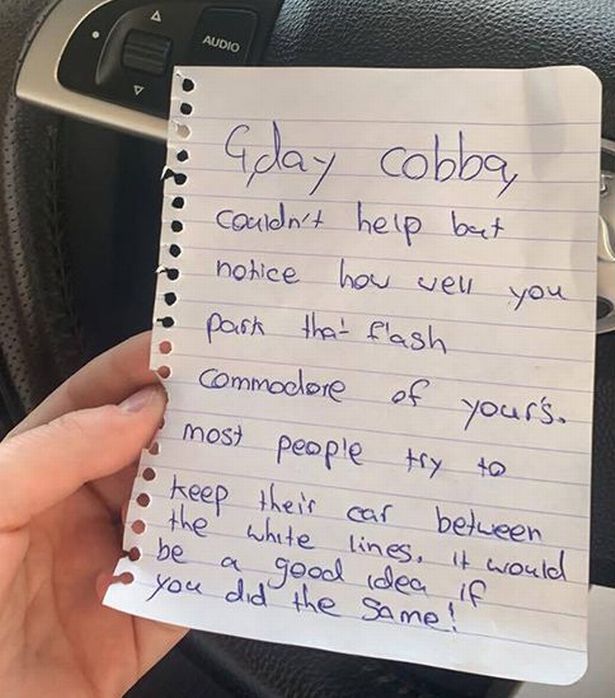 AUDIO
G,day cobba,
couldn't help but
notice how well you
park that flash
commodore of your's.
most people try to
keep their car between
the white lines. it would
be a good idea if
you did the same!